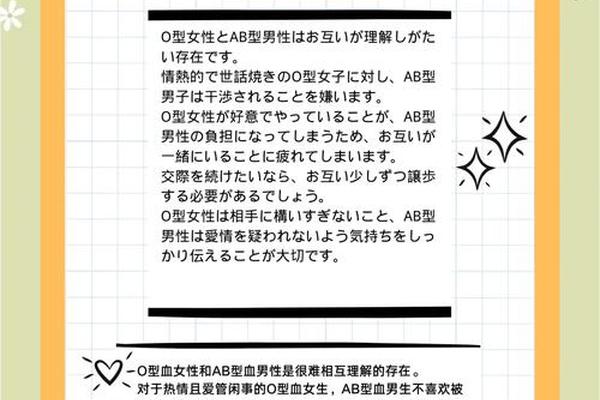 O型女性とAB型男性はお互いが理解しがた
い存在です。
情熱的で世話焼きのO型女子に対し、AB型
男子は干渉されることを嫌います。
O型女性が好意でやっていることが、AB型
男性の負担になってしまうため、お互いが
一緒にいることに疲れてしまいます。
交際を続けたいなら、お互い少しずつ譲歩
する必要があるでしょう。
O型女性は相手に構いすぎないこと、AB型
男性は愛情を疑われないよう気持ちをしっ
かり伝えることが大切です。
O型血女性和AB型血男性是很难相互理解的存在。
对于热情且爱管闲事的O型血女生，AB型血男生不喜欢被